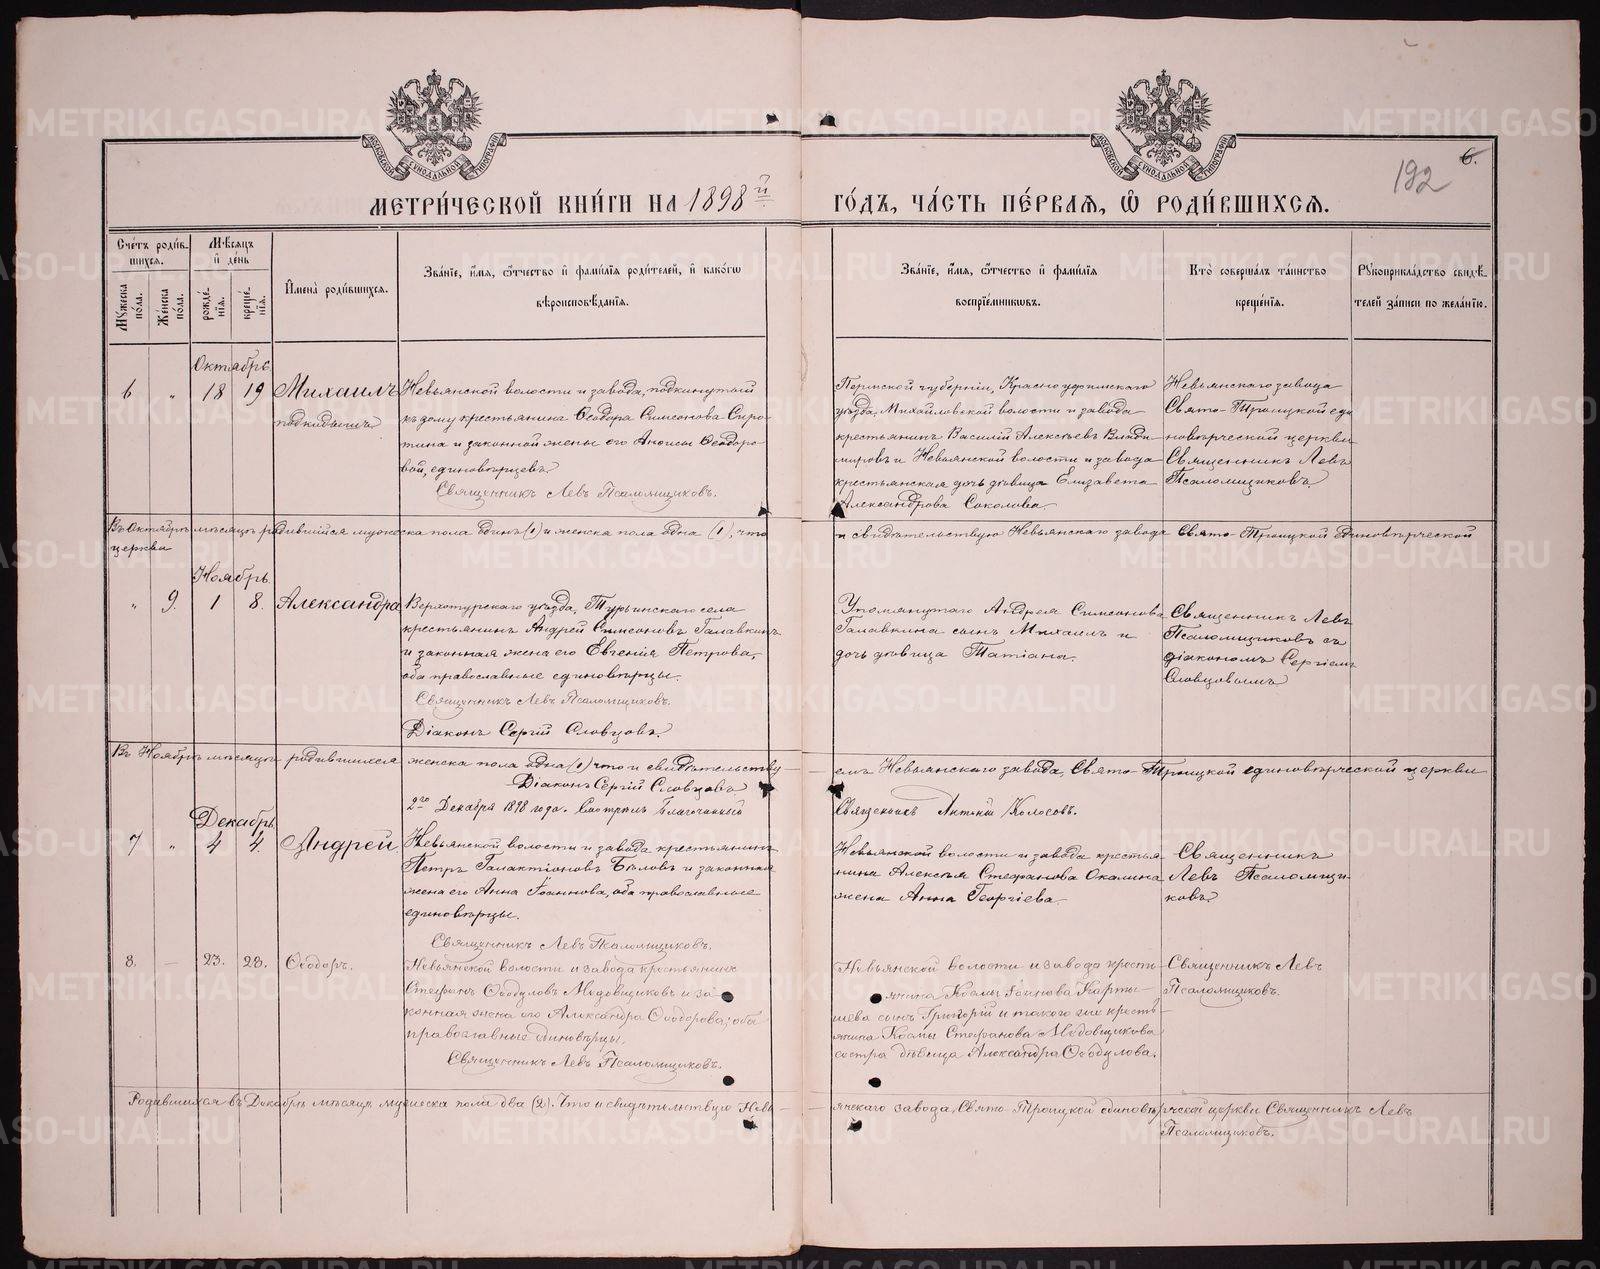 МЕТРИ́ЧЕСКОЙ КНИ́ГИ НА 1898 й
ГО́ДЪ, ЧА́СТЬ ПЕ́РВАЯ, Ѽ РОДИ́ВШИХСЯ.
192
6.
Сче́тъ роди́вшихся.
Мѣ́сяцъ и де́нь
Муже́ска по́ла.
Же́нска по́ла.
рожде́нїя.
креще́нїя.
И҆мена̀ роди́вшихся.
Зва́нїе, и҆́мя, ѻ҆́тчество и҆ фами́лїя роди́телей, и҆ како́гѡ
вѣроисповѣ́данїя.
Зва́нїе, и҆́мя, ѻ҆́тчество и҆ фами́лїя
воспрїе́мниковъ.
Кто̀ соверша́лъ та́инство
креще́нїя.
Рукоприкла́дство свидѣ́-
телей за́писи по жела́нїю.
Октябрь.
6 „ 18 19 Михаилъ
подкидышъ
Невьянской волости и завода, подкинутый
къ дому крестьянина Ѳеодора Симеонова Сиро-
тина и законной жены его Анисьи Ѳеодоро-
вой, единовѣрцевъ.
Священникъ Левъ Псаломщиковъ.
Пермской губерніи, Красноуфимскаго
уѣзда, Михайловской волости и завода
крестьянинъ Василій Алексѣевъ Влади-
мировъ и Невьянской волости и завода
крестьянская дочь дѣвица Елизавета
Александрова Соколова.
Невьянскаго завода
Свято-Троицкой еди
новѣрческой церкви
Священникъ Левъ
Псаломщиковъ.
Въ Октябрѣ мѣсяцѣ родившійся мужеска пола одинъ (1) и женска пола одна (1), что
и свидѣтельствую Невьянскаго завода Свято-Троицкой Единовѣрческой
церкви
Ноябрь.
„ 9. 1 8. Александра
Верхотурскаго уѣзда, Турьинскаго села
крестьянинъ Андрей Симеоновъ Галавкинъ
и законная жена его Евгенія Петрова,
оба православные единовѣрцы.
Священникъ Левъ Псаломщиковъ.
Діаконъ Сергій Словцовъ.
Упомянутаго Андрея Симеонова
Галавкина сынъ Михаилъ и
дочь дѣвица Татіана.
Священникъ Левъ
Псаломщиковъ съ
діакономъ Сергіемъ
Словцовымъ
Въ Ноябрѣ мѣсяцѣ родившихся женска пола одна (1) что и свидѣтельству-
емъ Невьянскаго завода, Свято-Троицкой единовѣрческой церкви
Діаконъ Сергій Словцовъ
2го Декабря 1898 года. Смотрѣлъ Благочинный
Священникъ Антоній Колосовъ.
Декабрь
7 „ 4 4. Андрей
Невьянской волости и завода крестьянинъ
Петръ Галактіоновъ Бѣловъ и законная
жена его Анна Іоаннова, оба православные
единовѣрцы.
Священникъ Левъ Псаломщиковъ.
Невьянской волости и завода крестья
нина Алексѣя Стефанова Окалина
жена Анна Георгіева
Священникъ
Левъ Псаломщи-
ковъ
8. — 23. 28. Ѳеодоръ.
Невьянской волости и завода крестьянинъ
Стефанъ Ѳеодуловъ Медовщиковъ и за
конная жена его Александра Ѳеодорова; оба
православные единовѣрцы.
Священникъ Левъ Псаломщиковъ.
Невьянской волости и завода кресть
янина Космы Іоаннова Карты-
шева сынъ Григорій и такого же кресть-
янина Космы Стефанова Медовщикова
сестра дѣвица Александра Ѳеодулова.
Священникъ Левъ
Псаломщиковъ.
Родившихся въ Декабрѣ мѣсяцѣ мужеска пола два (2). Что и свидѣтельствую Невь-
янскаго завода, Свято-Троицкой единовѣрческой церкви Священникъ Левъ
Псаломщиковъ.